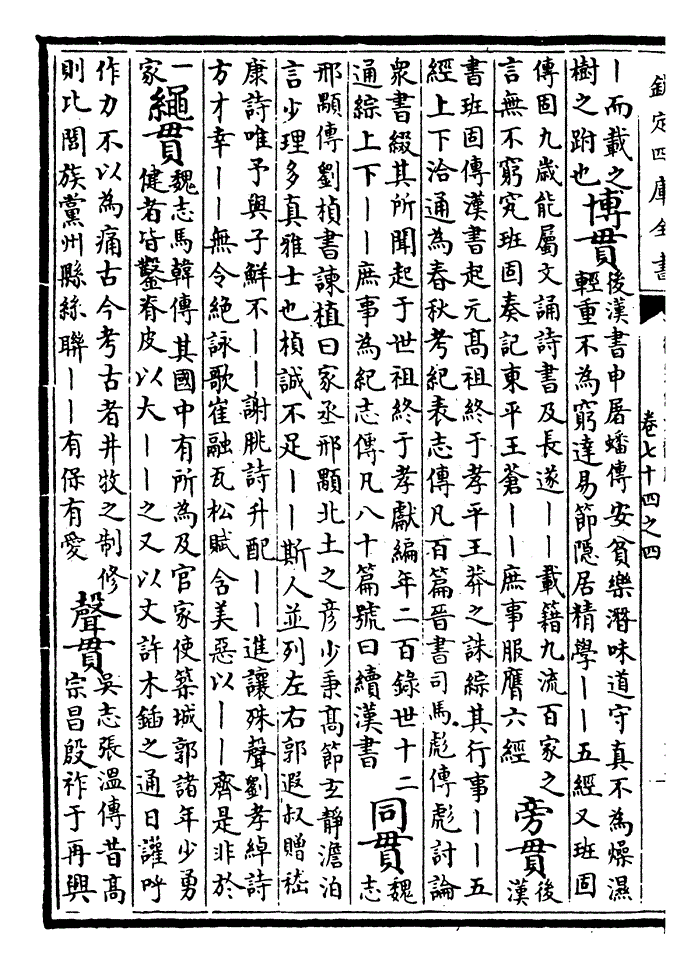 欽定四庫全書
卷七十四之四
丨而載之
樹之跗也
博貫
後漢書申屠蟠傳安貧樂潛味道守真不為燥濕
輕重不為窮達易節隱居精學丨丨五經又班固
傳固九歲能屬文誦詩書及長遂丨丨載籍九流百家之
言無不窮究班固奏記東平王蒼丨丨庶事服膺六經
旁貫
後
漢
書班固傳漢書起元高祖終于孝平王莽之誅綜其行事丨丨五
經上下洽通為春秋考紀表志傳凡百篇晉書司馬彪傳彪討論
眾書綴其所聞起于世祖終于孝獻編年二百錄世十二
通綜上下丨丨庶事為紀志傳凡八十篇號曰續漢書
同貫
魏
志
邢顒傳劉楨書諫植曰家丞邢顒北土之彥少秉高節玄靜澹泊
言少理多真雅士也楨誠不足丨丨斯人並列左右郭遐叔贈嵇
康詩唯予與子鮮不丨丨謝朓詩升配丨丨進讓殊聲劉孝綽詩
方才幸丨丨無令絕詠歌崔融瓦松賦含美惡以丨丨齊是非於
一
家
繩貫
魏志馬韓傳其國中有所為及官家使築城郭諸年少勇
健者皆鑿脊皮以大丨丨之又以丈許木鍤之通日讙呼
作力不以為痛古今考古者井牧之制修
則比閭族黨州縣絲聯丨丨有保有愛
聲貫
吳志張溫傳昔高
宗昌殷祚于再興